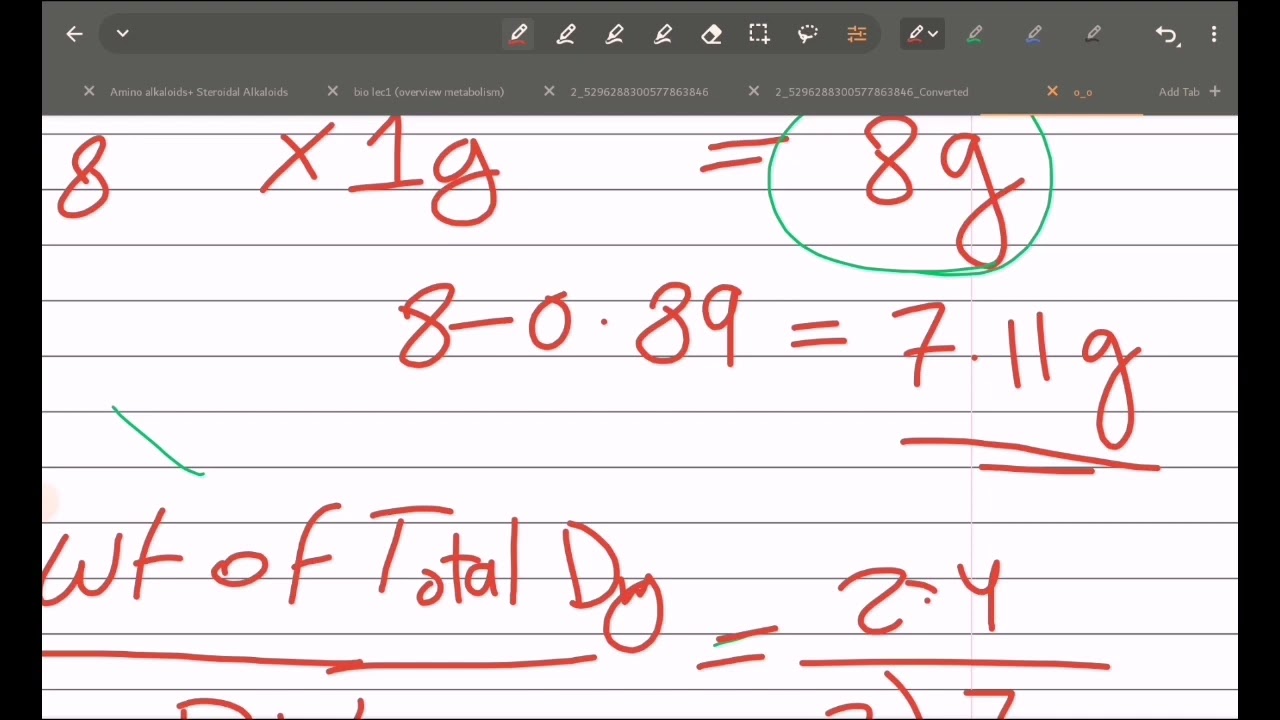 Amino alkaloids+ Steroidal Alkaloids bio lec1 (overview metabolism) 2_5296288300577863846 2_5296288300577863846_Converted o_o Add Tab +
8 × 1g = 8g
8 - 0.89 = 7.11g
wt of Total Drug = 2.4